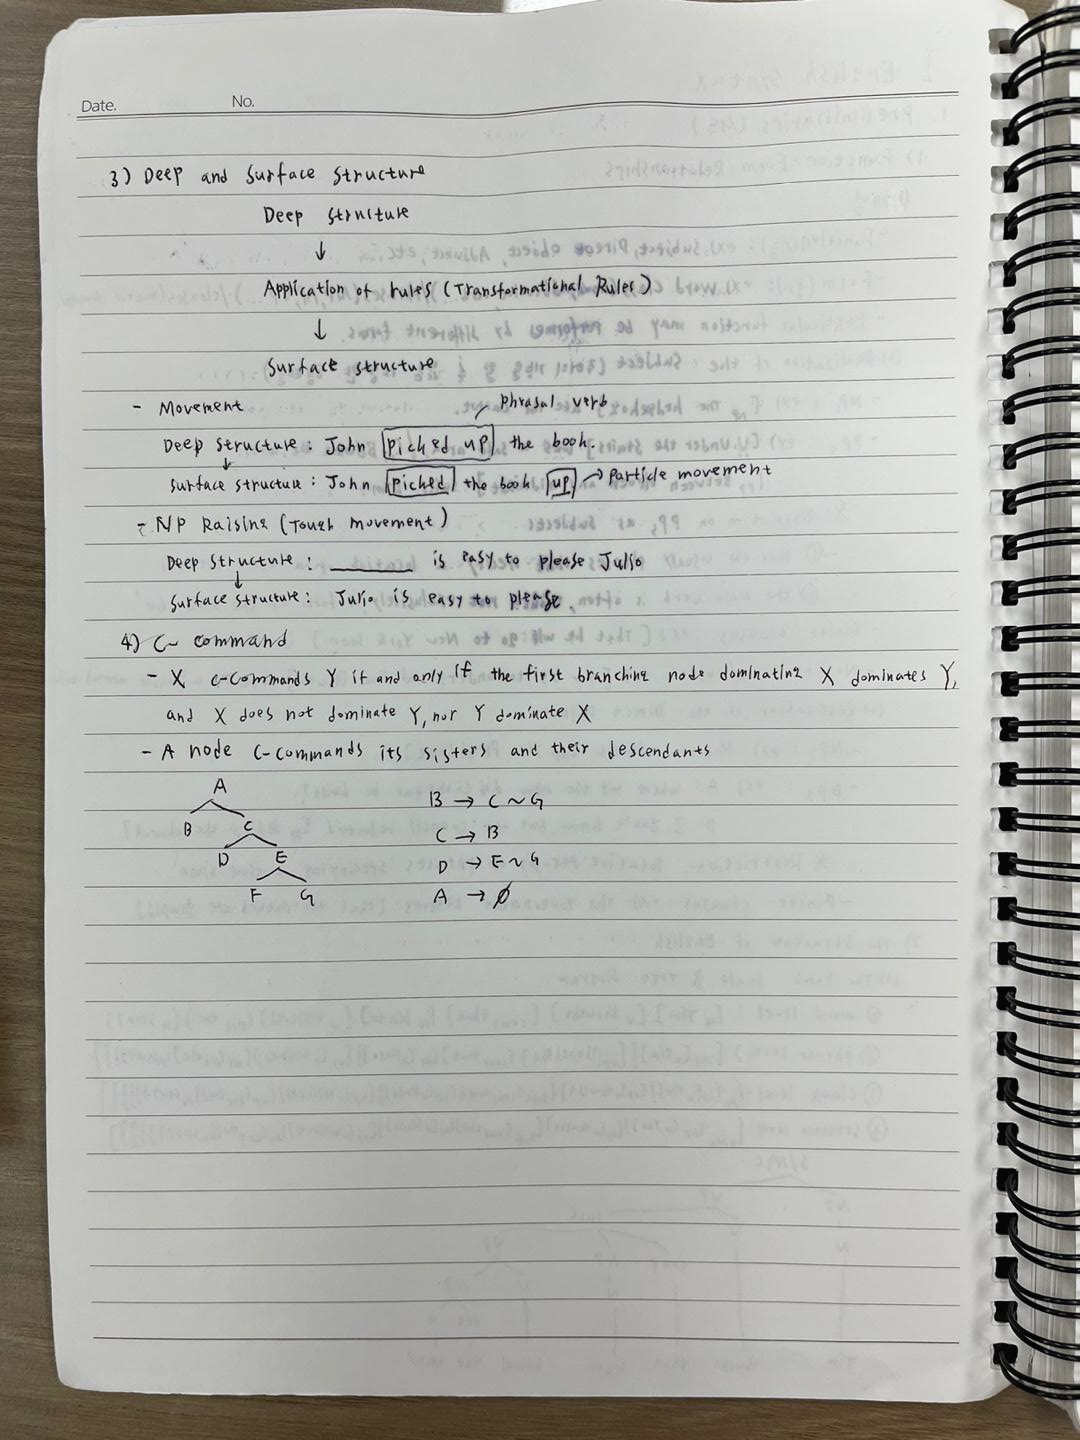 Date. No.
3) Deep and Surface Structure
Deep Structure
↓
Application of rules (Transformational Rules)
↓
Surface structure
- Movement
phrasal verb
Deep structure : John picked up the book.
↓
Surface structure : John picked the book up → Particle movement
- NP Raising (Tough movement)
Deep structure : ________ is easy to please Julio
↓
Surface structure : Julio is easy to please.
4) C- command
- X c-commands Y if and only if the first branching node dominating X dominates Y,
and X does not dominate Y, nor Y dominate X
- A node C-commands its sisters and their descendants
A
B → C ~ G
B C
C → B
D E
D → E ~ G
F G
A → ∅